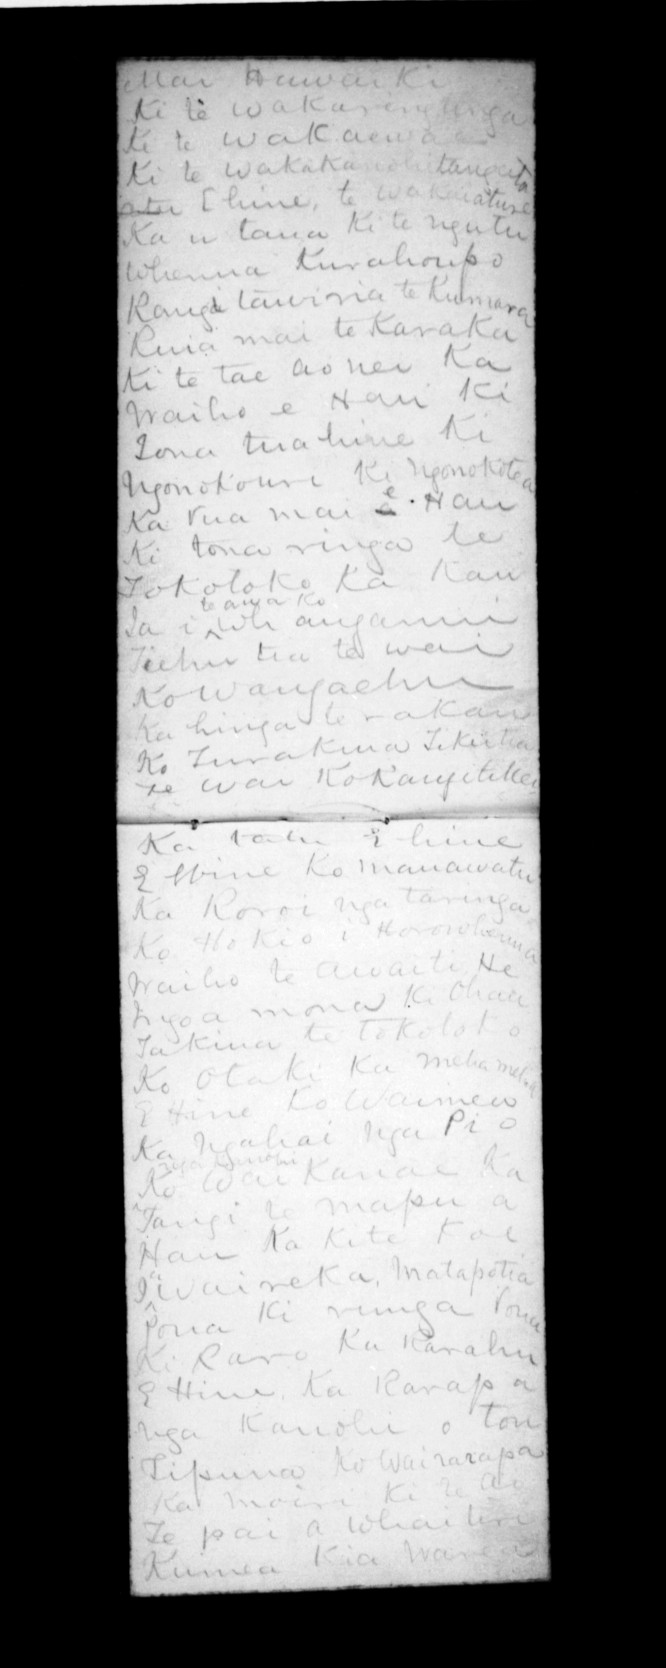 Mai Hawaiki
Ki te wakarengringa
Ki te wakaewa
Ki te wakakanohitangata
E hine, te wakaiature
Ka u tana Ki te ngutu
Whenua Kurahoupo
Rangi tawiria te Kumara
Ruia mai te Karaka
Ki te tae ao nei Ka
Waiho e Hau Ki
Tona tuahine Ki
Ngonokouri Ki Ngonokotea
Ka rua mai e . Hau
Ki tona ringa te
Tokotoko Ka Kau
Ia i te awa ko Whanganui
Tiehu tia te wai
Ko Wangaehu
Ka hinga te rakau
Ko Turakina Tikitia
te wai Ko Rangitikei
Ka tatu E hine
E Hine Ko manawatu
Ka Roroi nga taringa
Ko Hokio i Horowhenua
Waiho te awaiti He
Ingoa mona Ki Ohaa
Takina te tokotoko
Ko Otaki Ka mehameha
E Hine Ko Waimea
Ka Ngahai nga Pi o
nga Kanohi
Ko Wai Kanae Ka
Tangi te mapu a
Hau Ka Kite Koe
I a Waireka, Matapotia
Pona Ki runga rona
Ki Raro Ka Rarahu
E Hine Ka Rarapa
nga Kanohi o tou
Tipuna Ko Wairarapa
Ka moiri Ki te ao
Te pai a Whaitiri
Kumea Kia Warea